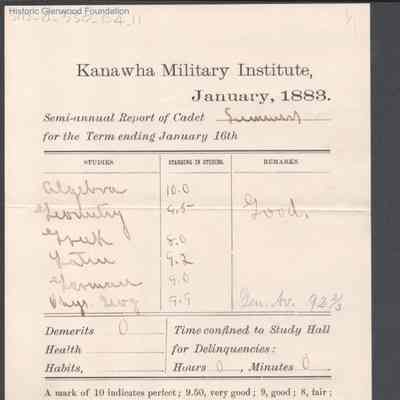 Historic Glenwood Foundation
Kanawha Military Institute,
January, 1883.
Semi-annual Report of Cadet Summers
for the Term ending January 16th
STUDIES STANDING IN STUDIES. REMARKS
Algebra 10.0
Geometry 9.5 Good.
Greek 8.0
Latin 9.2
German 9.0
Phys. Geog 9.9 Gen. Av. 92 2/3
Demerits 0 Time confined to Study Hall
Health for Delinquencies:
Habits, Hours 0, Minutes 0.
A mark of 10 indicates perfect; 9.50, very good; 9, good; 8, fair;